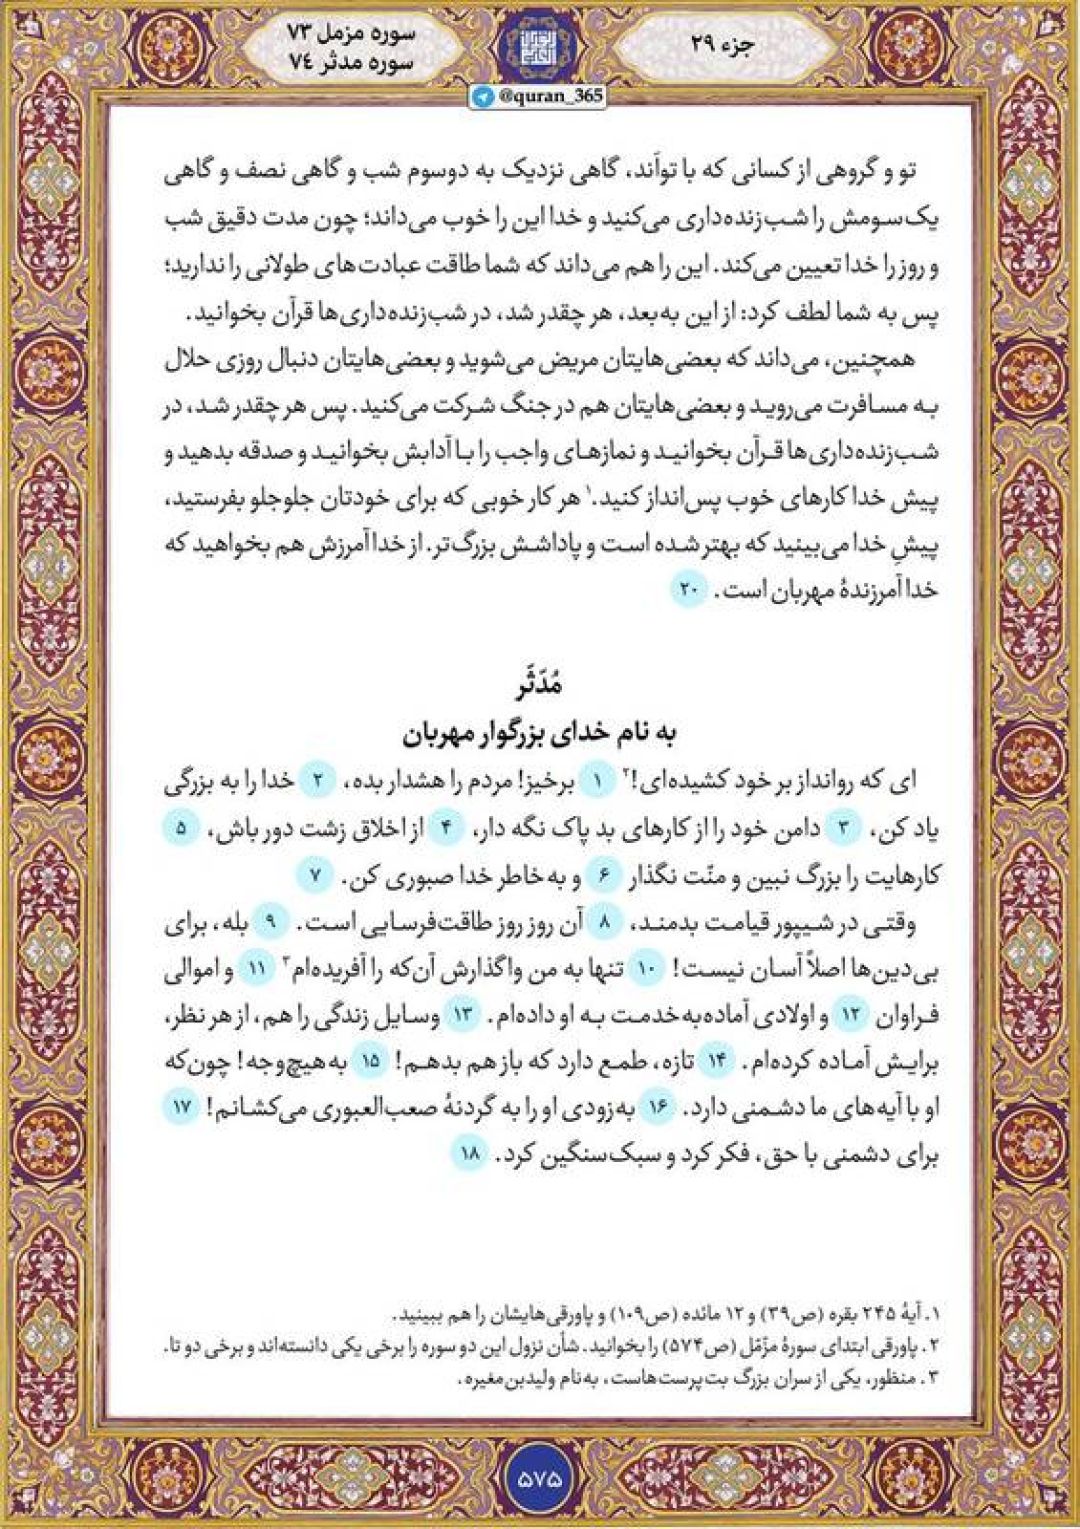 جزء ۲۹
سوره مزمل ۷۳
سوره مدثر ۷۴
@quran_365
تو و گروهی از کسانی که با تواَند، گاهی نزدیک به دوسوم شب و گاهی نصف و گاهی
یک‌سومش را شب‌زنده‌داری می‌کنید و خدا این را خوب می‌داند؛ چون مدت دقیق شب
و روز را خدا تعیین می‌کند. این را هم می‌داند که شما طاقت عبادت‌های طولانی را ندارید؛
پس به شما لطف کرد: از این به‌بعد، هر چقدر شد، در شب‌زنده‌داری‌ها قرآن بخوانید.
همچنین، می‌داند که بعضی‌هایتان مریض می‌شوید و بعضی‌هایتان دنبال روزی حلال
به مسافرت می‌روید و بعضی‌هایتان هم در جنگ شرکت می‌کنید. پس هر چقدر شد، در
شب‌زنده‌داری‌ها قرآن بخوانید و نمازهای واجب را با آدابش بخوانید و صدقه بدهید و
پیش خدا کارهای خوب پس‌انداز کنید.۱ هر کار خوبی که برای خودتان جلوجلو بفرستید،
پیشِ خدا می‌بینید که بهتر شده است و پاداشش بزرگ‌تر. از خدا آمرزش هم بخواهید که
خدا آمرزندهٔ مهربان است. ۲۰
مُدّثّر
به نام خدای بزرگوار مهربان
ای که روانداز بر خود کشیده‌ای!۲ ۱ برخیز! مردم را هشدار بده، ۲ خدا را به بزرگی
یاد کن، ۳ دامن خود را از کارهای بد پاک نگه دار، ۴ از اخلاق زشت دور باش، ۵
کارهایت را بزرگ نبین و منّت نگذار ۶ و به خاطر خدا صبوری کن. ۷
وقتی در شیپور قیامت بدمند، ۸ آن روز روز طاقت‌فرسایی است. ۹ بله، برای
بی‌دین‌ها اصلاً آسان نیست! ۱۰ تنها به من واگذارش آن‌که را آفریده‌ام۳ ۱۱ و اموالی
فراوان ۱۲ و اولادی آماده‌به‌خدمت به او داده‌ام. ۱۳ وسایل زندگی را هم، از هر نظر،
برایش آماده کرده‌ام. ۱۴ تازه، طمع دارد که باز هم بدهم! ۱۵ به‌هیچ‌وجه! چون‌که
او با آیه‌های ما دشمنی دارد. ۱۶ به‌زودی او را به گردنهٔ صعب‌العبوری می‌کشانم! ۱۷
برای دشمنی با حق، فکر کرد و سبک‌سنگین کرد. ۱۸
۱. آیهٔ ۲۴۵ بقره (ص۳۹) و ۱۲ مائده (ص۱۰۹) و پاورقی‌هایشان را هم ببینید.
۲. پاورقی ابتدای سورهٔ مزّمّل (ص۵۷۴) را بخوانید. شأن نزول این دو سوره را برخی یکی دانسته‌اند و برخی دو تا.
۳. منظور، یکی از سران بزرگ بت‌پرست‌هاست، به‌نام ولیدبن‌مغیره.
۵۷۵